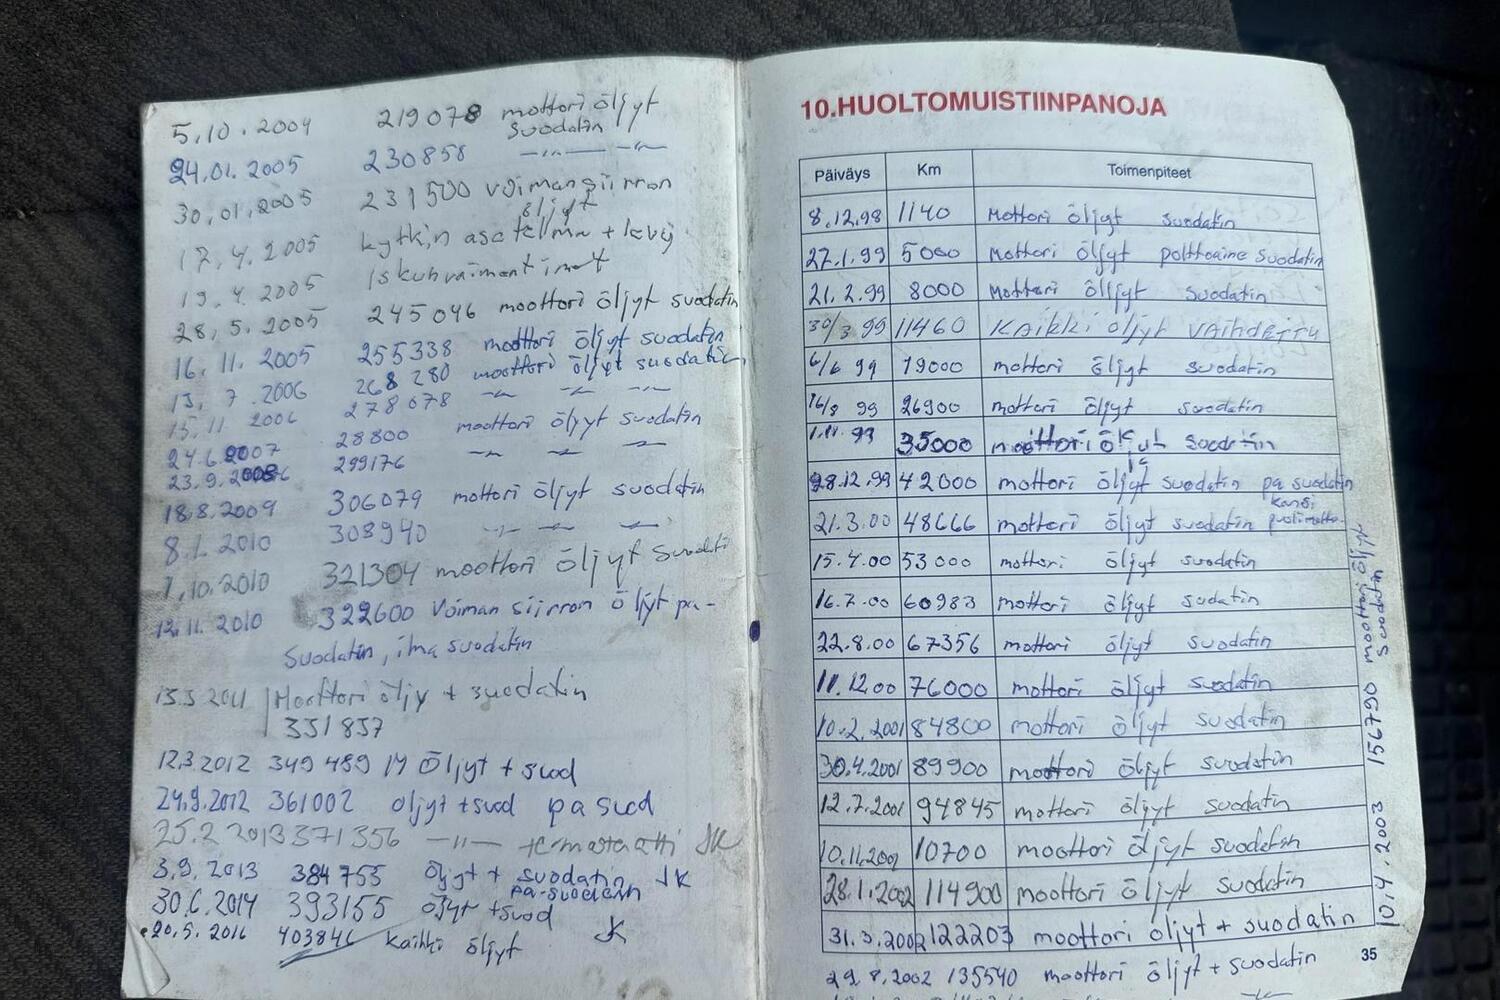 5.10.2004 219078 mottori öljyt
suodatin
24.01.2005 230858 –"– –"–
30.01.2005 231500 voimansiirron
öljyt
17.4.2005 kytkin asetelma + levy
19.4.2005 Iskunvaimentimet
28.5.2005 245046 moottori öljyt suodatin
16.11.2005 255338 moottori öljyt suodatin
13.7.2006 268280 moottori öljyt suodatin
15.11.2006 278078 –"– –"–
24.6.2007 28800 moottori öljyt suodatin
23.9.2008 299176 –"– –"– –"–
18.8.2009 306079 mottori öljyt suodatin
8.1.2010 308940 –"– –"– –"–
1.10.2010 321304 moottori öljyt suodati
12.11.2010 322600 Voiman siirron öljyt pa-
suodatin, ilma suodatin
13.3 2011 Moottori öljy + suodatin
331837
12.3.2012 349489 M Öljyt + suod
24.9.2012 361002 öljyt + suod pa suod
25.2 2013 371356 –"– termostaatti JK
3.9.2013 384755 Öljyt + suodatin JK
pa-suodatin
30.6.2014 393155 öljyt + suod
20.5.2016 403846 kaikki öljyt JK
10.HUOLTOMUISTIINPANOJA
Päiväys Km Toimenpiteet
8.12.98 1140 Mottori öljyt suodatin
27.1.99 5000 Mottori öljyt polttoaine suodatin
21.2.99 8000 Mottori öljyt suodatin
30/3 99 11460 KAIKKI öljyt VAIHDETTU
6/6 99 19000 mottori öljyt suodatin
16/8 99 26900 mottori öljyt suodatin
1.11.99 35000 moottori öljyt suodatin
28.12.99 42000 mottori öljyt suodatin pa suodatin
21.3.00 48666 mottori öljyt suodatin
15.4.00 53000 mottori öljyt suodatin
16.7.00 60983 mottori öljyt sudatin
22.8.00 67356 mottori öljyt suodatin
11.12.00 76000 mottori öljyt suodatin
10.2.2001 84800 mottori öljyt suodatin
30.4.2001 89900 mottori öljyt suodatin
12.7.2001 94845 mottori öljyt suodatin
10.11.2001 10700 moottori öljyt suodatin
28.1.2002 114900 moottori öljyt suodatin
31.3.2002 122203 moottori öljyt + suodatin
29.8.2002 135540 moottori öljyt + suodatin
10.4.2003 156790 moottori öljyt
suodatin
35